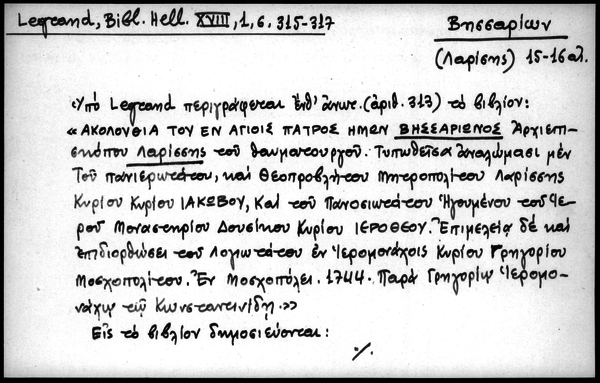 Legrand, Bibl. Hell. XVIII, 1, 6. 315-317
Βησσαρίων
(Λαρίσης) 15-16 αἰ.
Ὑπό Legrand περιγράφεται ἔνθ' ἄνωτ. (ἀριθ. 313) τό βιβλίον:
« ΑΚΟΛΟΥΘΙΑ ΤΟΥ ΕΝ ΑΓΙΟΙΣ ΠΑΤΡΟΣ ΗΜΩΝ ΒΗΣΣΑΡΙΩΝΟΣ Ἀρχιεπι-
σκόπου Λαρίσσης τοῦ θαυματουργοῦ. Τυπωθεῖσα ἀναλώμασι μέν
Τοῦ πανιερωτάτου, καί Θεοπροβλήτου Μητροπολίτου Λαρίσσης
Κυρίου Κυρίου ΙΑΚΩΒΟΥ, Καί τοῦ Πανοσιωτάτου Ἡγουμένου τοῦ Ἱε-
ροῦ Μοναστηρίου Δουσίκου Κυρίου ΙΕΡΟΘΕΟΥ. Ἐπιμελείᾳ δέ καί
ἐπιδιορθώσει τοῦ Λογιωτάτου ἐν Ἱερομονάχοις Κυρίου Γρηγορίου
Μοσχοπολίτου. Ἐν Μοσχοπόλει. 1744. Παρά Γρηγορίῳ Ἱερομο-
νάχῳ τῷ Κωνσταντινίδῃ.»
Εἰς τό βιβλίον δημοσιεύονται:
·/.